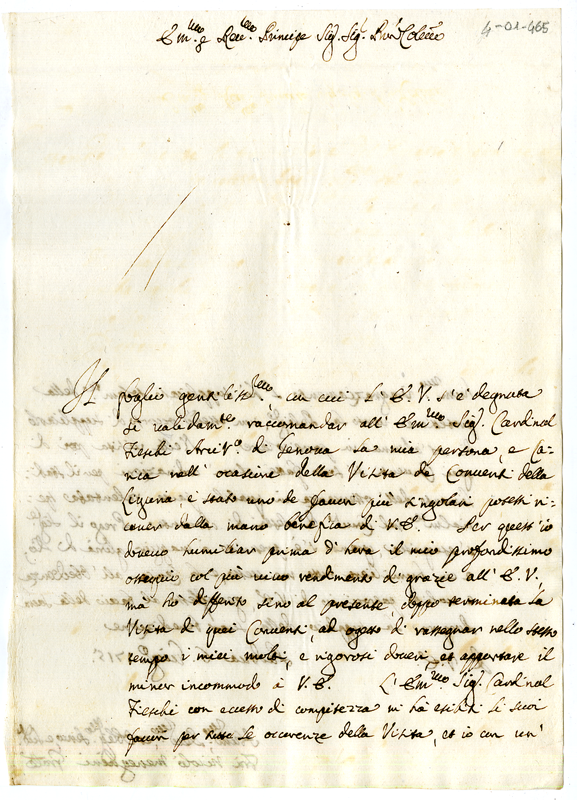 4-01-465
Em.mo e Rev.mo Principe Sig. Sig. Pron Colmo
Il foglio gentiliss.mo con cui l'E.V. s'è degnata
di validam.te raccomandar all'Em.mo Sig. Cardinal
Fieschi Arciv.o di Genova la mia persona, e Ca-
rica nell'ocasione della Visita de Conventi della
Liguria, è stato uno de favori più singolari potessi ri-
cever dalla mano benefica di V.E. Per quest'io
dovevo humiliar prima d'hora il mio profondissimo
ossequio col più vivo rendimento di grazie all'E.V.,
mà hò differito sino al presente doppo terminata la
Visita di quei Conventi, ad ogetto di rassegnar nello stesso
tempo i miei molti, e rigorosi doveri, et apportare il
minor incommodo à V.E. L'Em.mo Sig. Cardinal
Fieschi con eccesso di compitezza m'hà esibiti li suoi
favori per tutte le occorenze della Visita, et io con un'